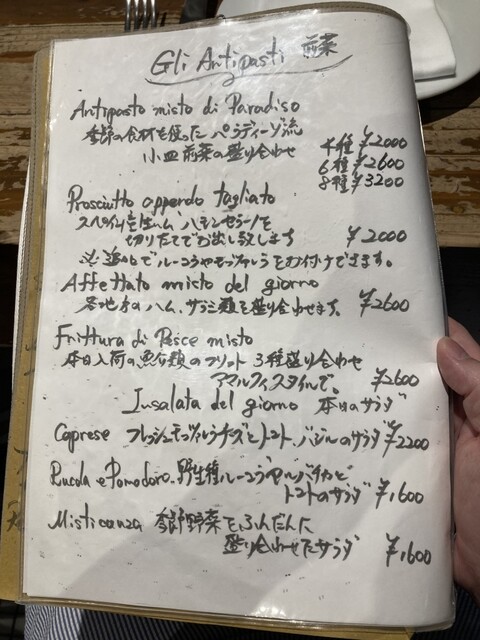 Gli Antipasti 前菜
Antipasto misto di Paradiso
季節の食材を使った パラディーゾ流
小皿前菜の盛り合わせ
4種 ¥2000
6種 ¥2600
8種 ¥3200
Prosciutto appendo tagliato
スペイン産生ハム、ハモンセラーノを
切りたてでお出し致します ¥2000
追加でルーコラやモッツァレラもお付けできます。
Affettato misto del giorno
各地方のハム、サラミ類を盛り合わせます。 ¥2600
Frittura di Pesce misto
本日入荷の魚介類のフリット 3種盛り合わせ
アマルフィスタイルで。 ¥2600
Insalata del giorno 本日のサラダ
Caprese フレッシュモッツァレラチーズとトマト、バジルのサラダ ¥2200
Rucola e Pomodoro. 野生種ルーコラセルバチカと
トマトのサラダ ¥1,600
Misticanza 季節野菜をふんだんに
盛り合わせたサラダ ¥1,600